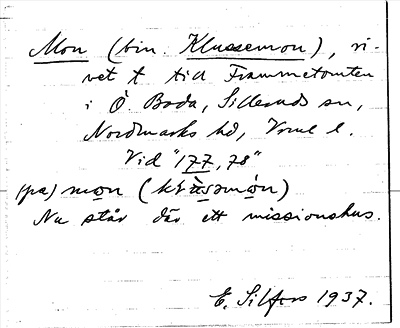 Mon (bin. Klussemon), ri-
vet t till Frammetomten
i Ö. Boda, Silleruds sn,
Nordmarks hd, Vrml l.
Vid "177,78"
(pa) mo̲n (
Nu står där ett missionshus.
E. Silfors 1937.